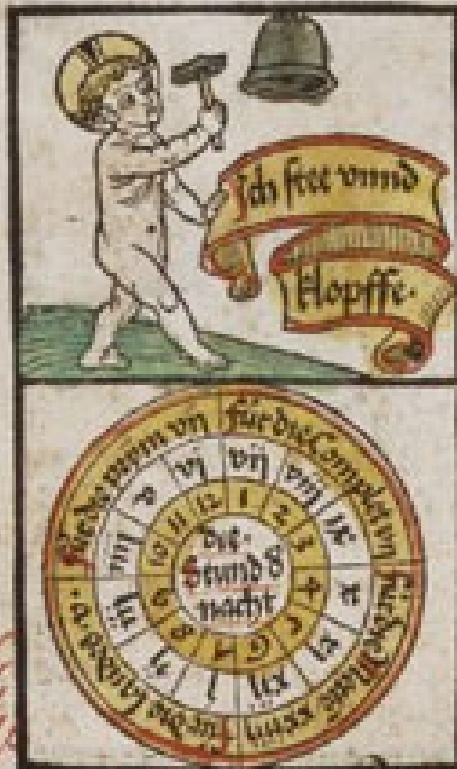 Ich stee vnnd
klopffe.
für die Complet vij
für die Mette xxxiiij
für die laudes . v .
für die vij
vij viij ix x xi xij j ij iij iiij v vj
1 2 3 4 5 6 7 8 9 10 11 12
die.
Stund d
nacht